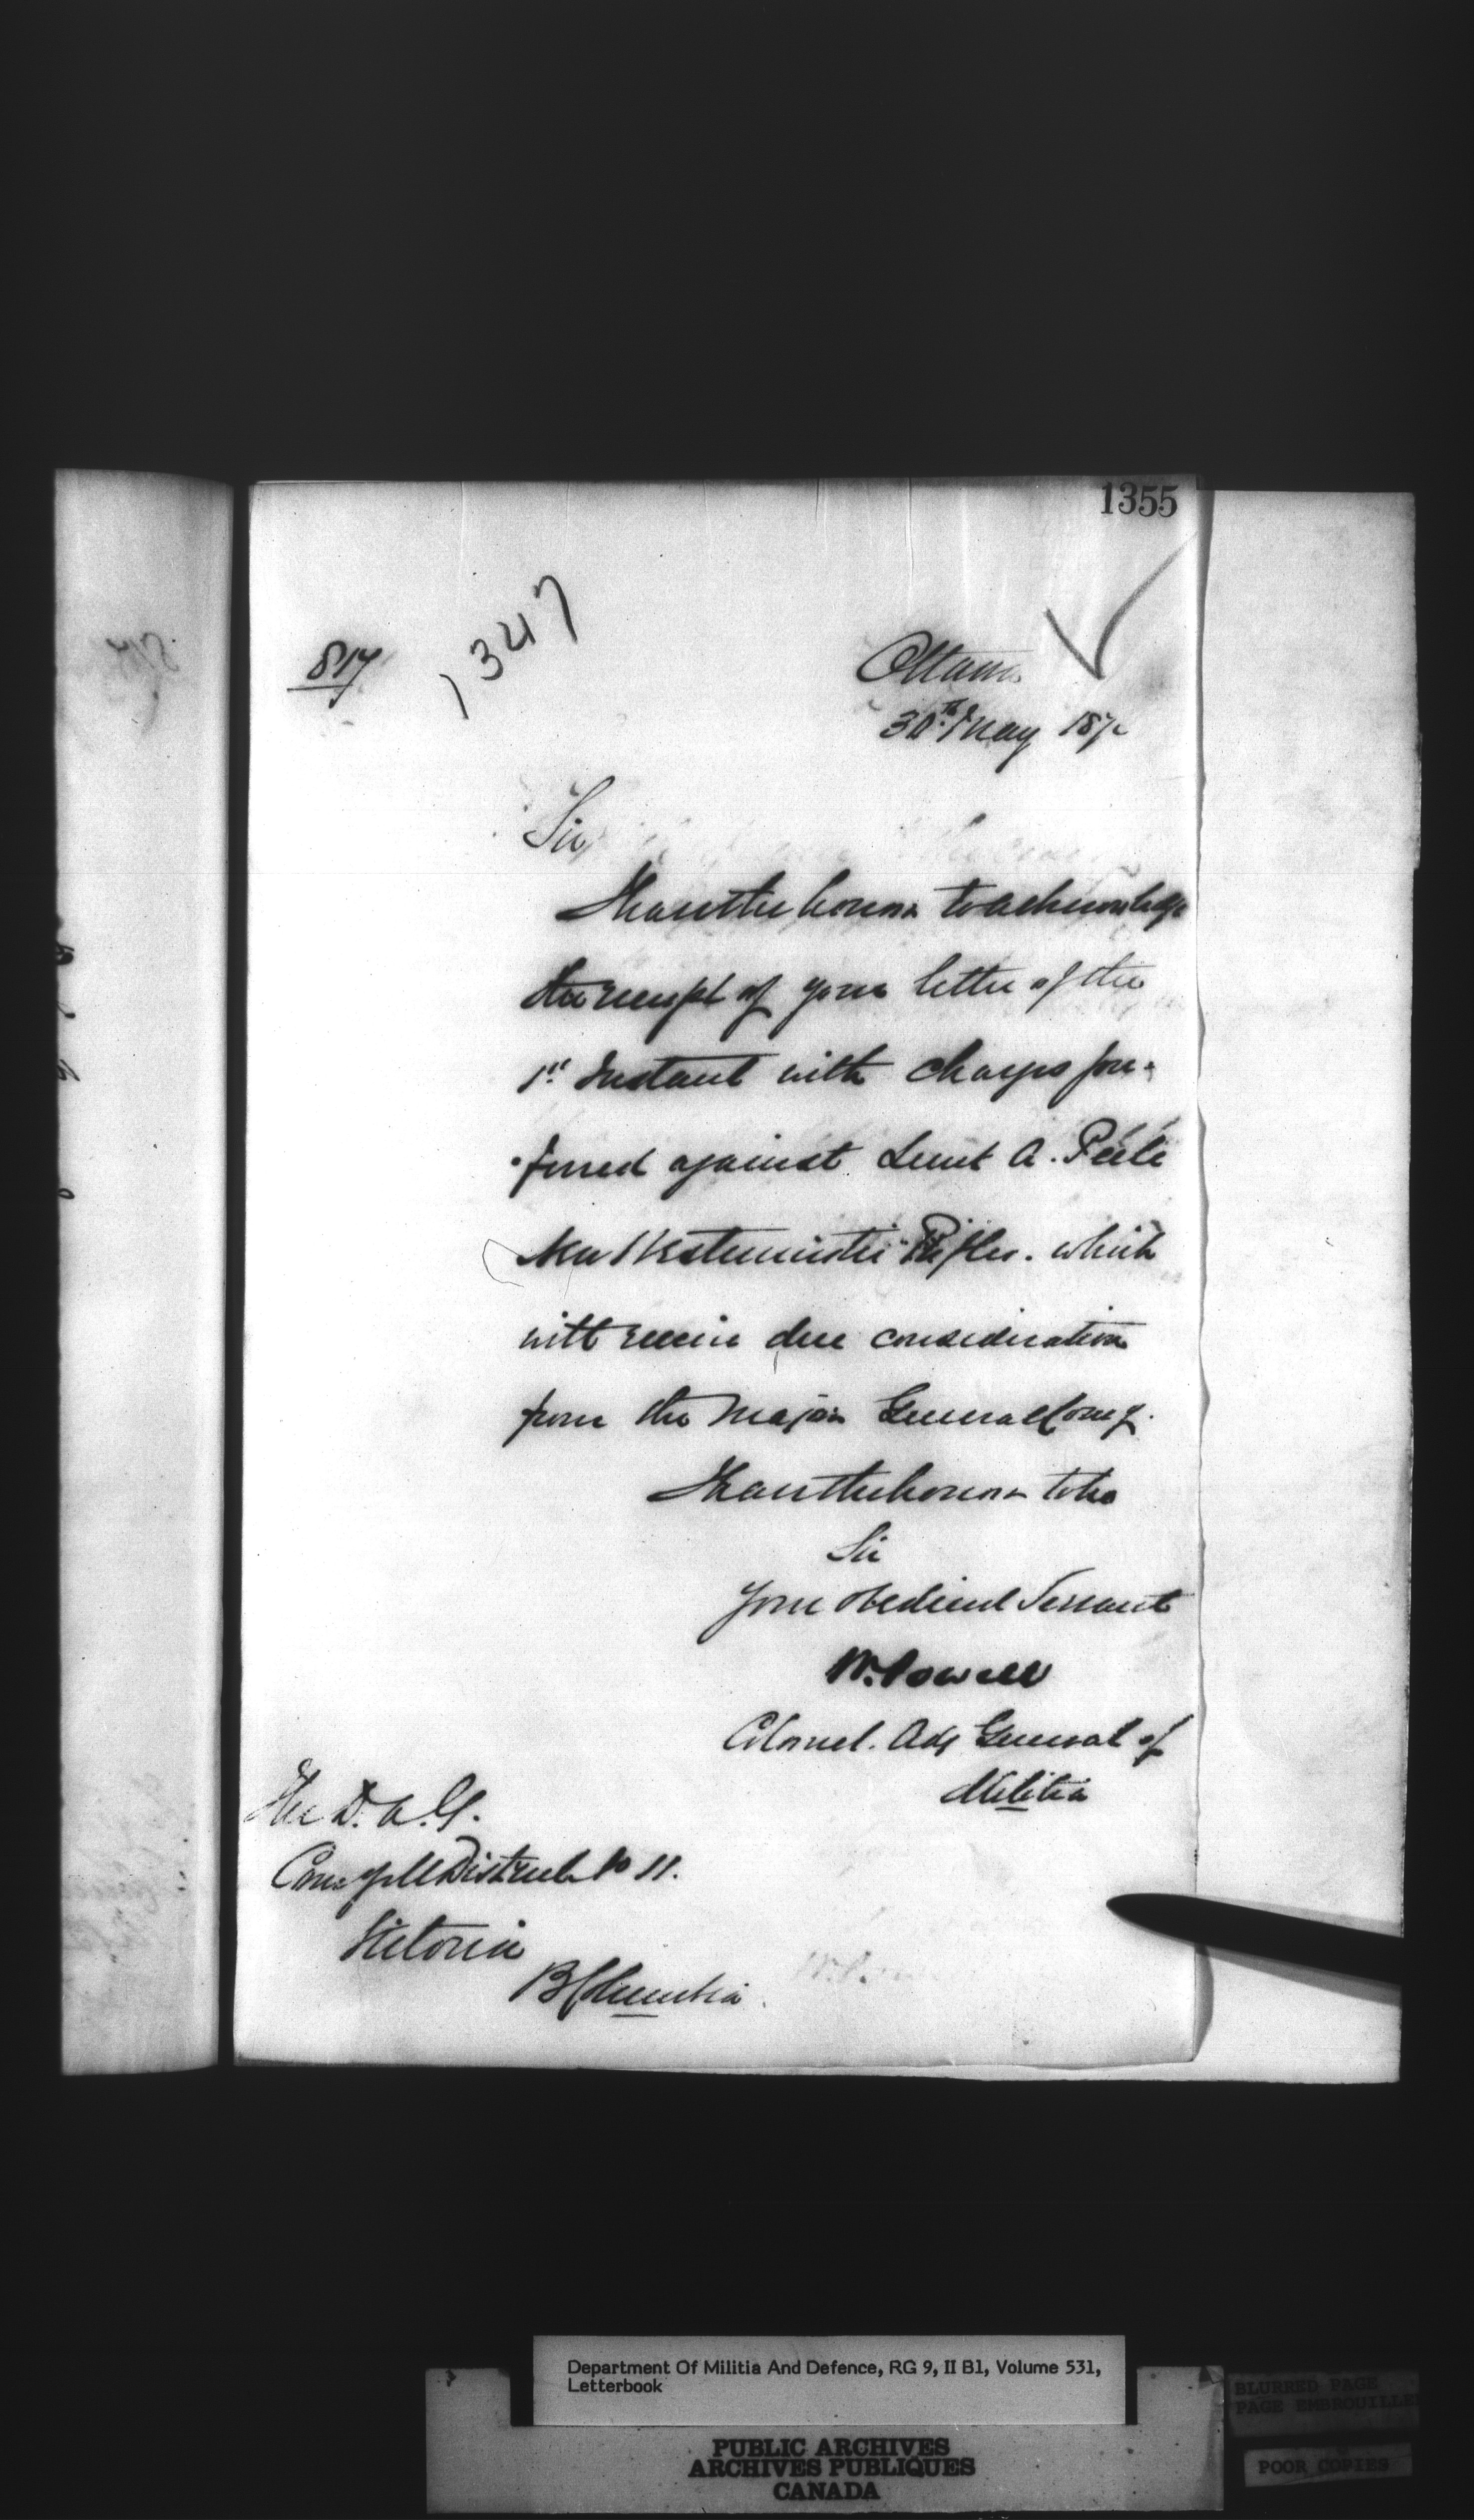 1355
817
1347
Ottawa
30th May 187
Sir
I have the honor to acknowledge
the receipt of your letter of the
1st Instant with charges pre-
-ferred against Lieut A. Peele
New Westminster Rifles. which
will receive due consideration
from the Major General Comg.
I have the honor to be
Sir
Your obedient Servant
W. Powell
Colonel. Adj General of
Militia
The D. A. G.
Comg Mil District No 11.
Victoria
B Columbia
Department Of Militia And Defence, RG 9, II B1, Volume 531,
Letterbook
PUBLIC ARCHIVES
ARCHIVES PUBLIQUES
CANADA
BLURRED PAGE
PAGE EMBROUILLEE
POOR COPIES